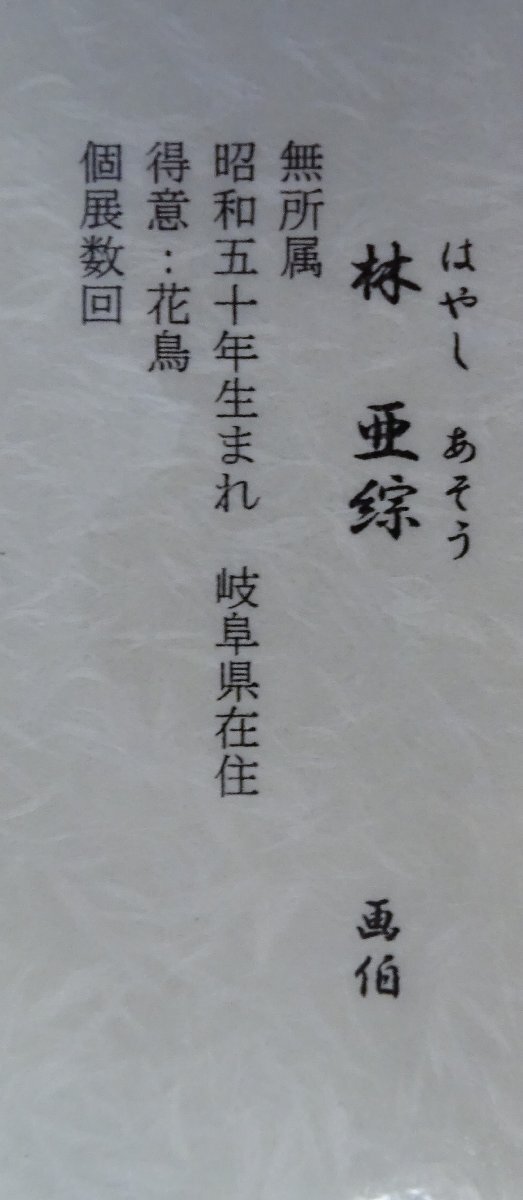 はやし あそう
林 亜綜 画伯
無所属
昭和五十年生まれ 岐阜県在住
得意：花鳥
個展数回